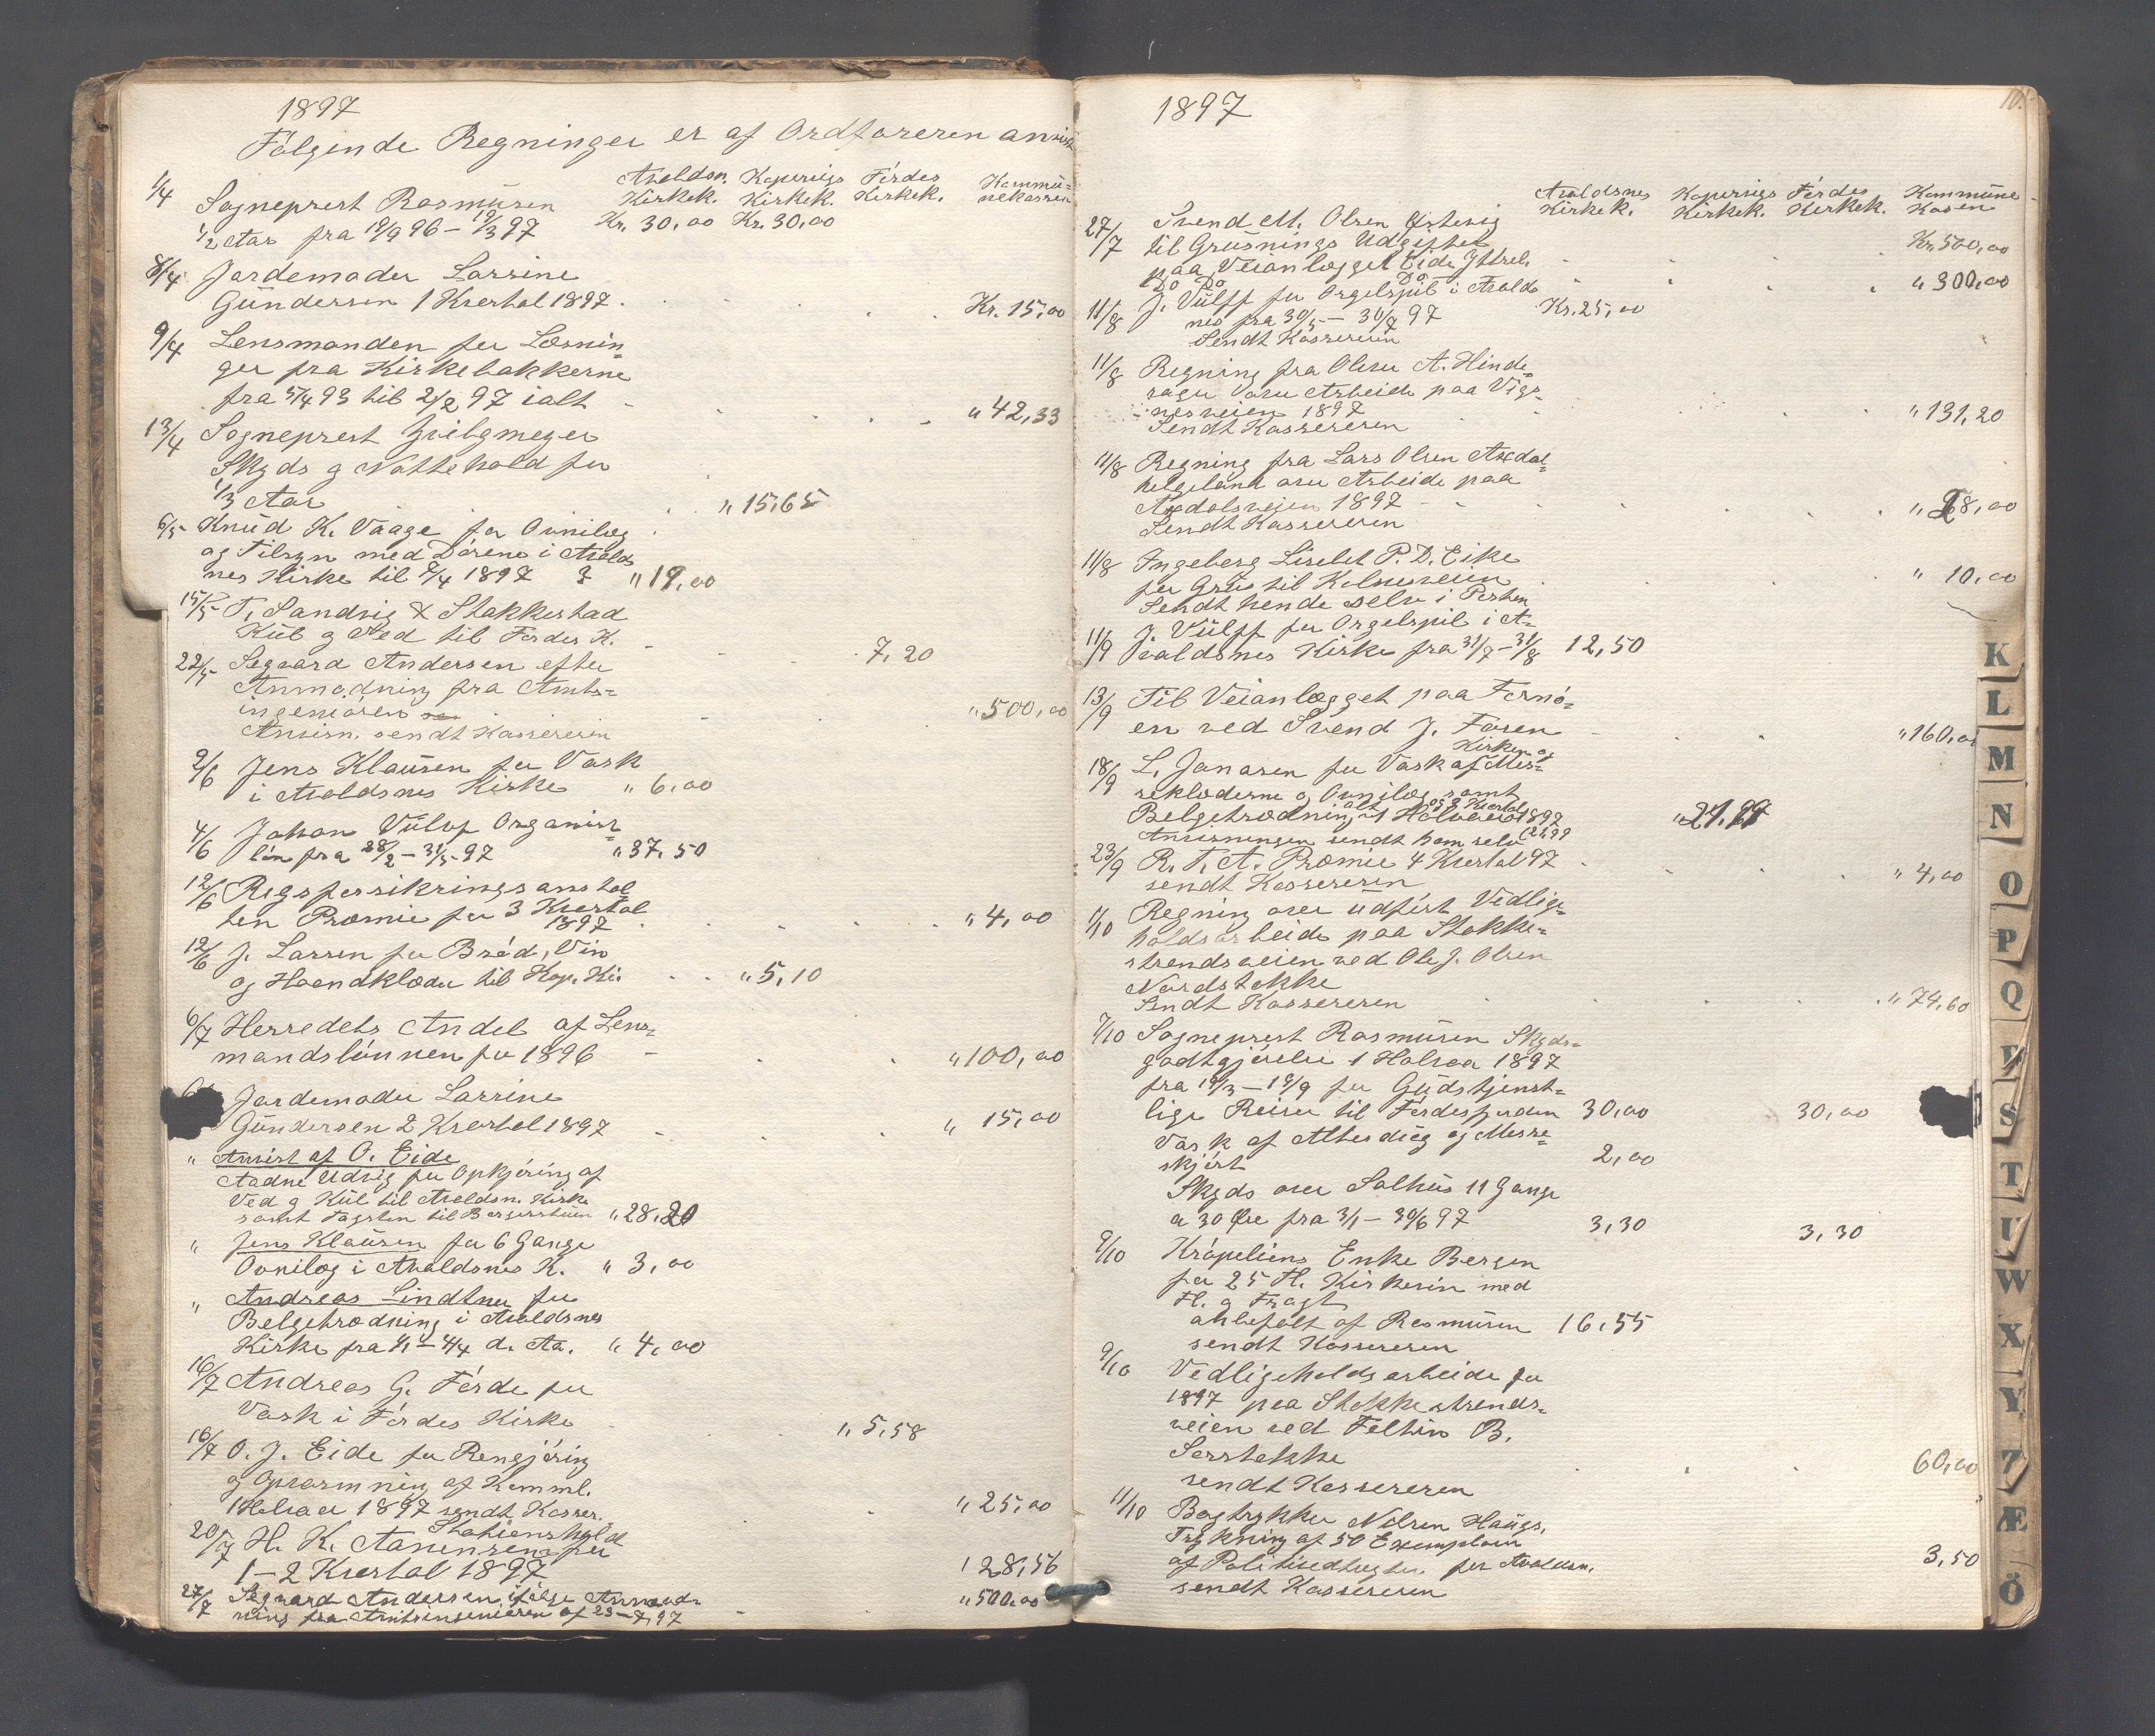 1897
Følgende Regninger er af Ordføreren anvist
Avaldsn. Kopervigs Førdes Kommü=
Kirkek. Kirkek. Kirkek. nekassen
1/4 Sogneprest Rasmüsen
1/2 Aar fra 19/9 96 – 19/3 97 Kr. 30,00 Kr. 30,00
8/4 Jordemoder Larsine
Gündersen 1 Kvertal 1897 Kr. 15,00
9/4 Lensmanden for Læsnin=
ger fra Kirkebakkerne
fra 5/4 93 til 2/2 97 ialt " 42,33
13/4 Sogneprest Zwilgmeyer
Skyds g Nattehold for
1/3 Aar " 15,65
6/5 Knüd K. Vaage for Ovnilæg
og Tilsyn med Dørene i Avalds
nes Kirke til 9/4 1897 " 19,00
15/5 T. Sandvig & Stakkestad
Kül g Ved til Førdes K. 7,20
22/5 Segvard Andersen efter
Anmodning fra Amts=
ingeniøren " 500,00
Anvisn. sendt Kassereren
2/6 Jens Klaüsen for Vask
i Avaldsnes Kirke " 6,00
4/6 Johan Vülff Organist
løn fra 28/2 – 31/5 97 " 37,50
12/6 Rigsforsikringsanstal
ten Præmie for 3 Kvertal
1897 " 4,00
12/6 J. Larsen for Brød, Vin
og Haandklæder til Kop. Ki. " 5,10
6/7 Herredets Andel af Lens=
mandslønnen for 1896 " 100,00
Jordemoder Larsine
Gündersen 2 Kvertal 1897 " 15,00
" Anvist af O. Eide
Aadne Udvig for Opkjøring af
Ved g Kül til Avaldsn. Kirke
samt Tagsten til Borgerstüen " 28,20
" Jens Klaüsen for 6 Gange
Ovnilæg i Avaldsnes K. " 3,00
" Andreas Lindtner for
Belgetrædning i Avaldsnes
Kirke fra 1/1 – 4/4 d. Aa. " 4,00
16/7 Andreas G. Førde for
Vask i Førdes Kirke " 5,58
16/7 O. J. Eide for Rengjøring
og Opvarmning af Komml.
1 Halvaar 1897 sendt Kasser. " 25,00
20/7 H. K. Aanensen Stationshold for
1–2 Kvertal 1897 128,56
27/7 Segvard Andersen ifølge Anmod=
ning fra Amtsingeniøren af 23–7, 97 " 500,00
1897
Avaldsnes Kopervigs Førdes Kommüne
Kirkek. Kirkek. Kirkek. Kassen
27/7 Svend M. Olsen Østevig
til Grüsnings Udgifter Kr. 500,00
paa Veianlægget Eide Yttrel.
Do Do Do " 300,00
11/8 J. Vülff for Orgelspil i Avalds
nes fra 30/5 – 30/7 97 Kr. 25,00
Sendt Kassereren
11/8 Regning fra Olesen A. Hinde=
ragen over Arbeide paa Vigs=
nesveien 1897 " 131,20
Sendt Kassereren
11/8 Regning fra Lars Olsen Axdal=
helgeland over Arbeide paa
Axdalsveien 1897 8,00
Sendt Kassereren
11/8 Ingeborg Liselet P. D. Eike
for Grüs til Kolnesveien " 10,00
Sendt hende selv i Posten
11/9 J. Vülff for Orgelspil i A=
valdsnes Kirke fra 31/7 – 31/8 12,50
13/9 Til Veianlægget paa Fornø=
en ved Svend J. Fosen " 160,00
18/9 L. Janasen for Vask af Kirken og Mes=
seklæderne g Ovnilæg samt
Belgetrædning alt og 2 Kvertal
1 Halvaar 1897
Anvisningen sendt ham selv
23/9 R. F. A. Præmie 4 Kvertal 97 " 4,00
sendt Kassereren
1/10 Regning over üdført Vedlige=
holdsarbeide paa Stokke=
strandsveien ved Ole J. Olsen
Nordstokke
Sendt Kassereren " 74,60
7/10 Sogneprest Rasmüsen Skyds=
godtgjørelse 1 Halvaa 1897
fra 19/3 – 19/9 for Güdstjenst=
lige Reiser til Førdesfjorden 30,00 30,00
Vask af Alterdüg og Messe=
skjort 2,00
Skyds over Salhüs 11 Gange
a 30 Øre fra 3/1 – 30/6 97 3,30 3,30
9/10 Krøpeliens Enke Bergen
for 25 Fl. Kirkevin med
Fl. g Fragt
anbefalt af Rasmüsen 16,55
sendt Kassereren
9/10 Vedligeholdsarbeide for
1897 paa Stokkestrands=
veien ved Feltin B.
Sørstokke 60,00
sendt Kassereren
11/10 Bogtrykker Nilsen Haügs.
Trykning af 50 Exemplarer
af Politivedtegter for Avaldsn. 3,50
sendt Kassereren
K
L
M
N
O
P
Q
V
S
T
U
W
X
Y
7
Æ
Ö